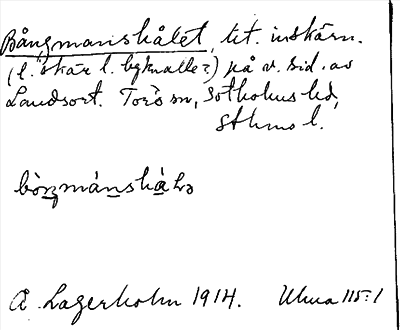 Bångmanshålet, lit. inskärn.
(l. skär l. bykualle?) på v. sid. av
Landsort. Torö sn, Sotholms hd,
Sthms l.
bòŋmánshàlə
A Lagerholm 1914. Uhua 115:1